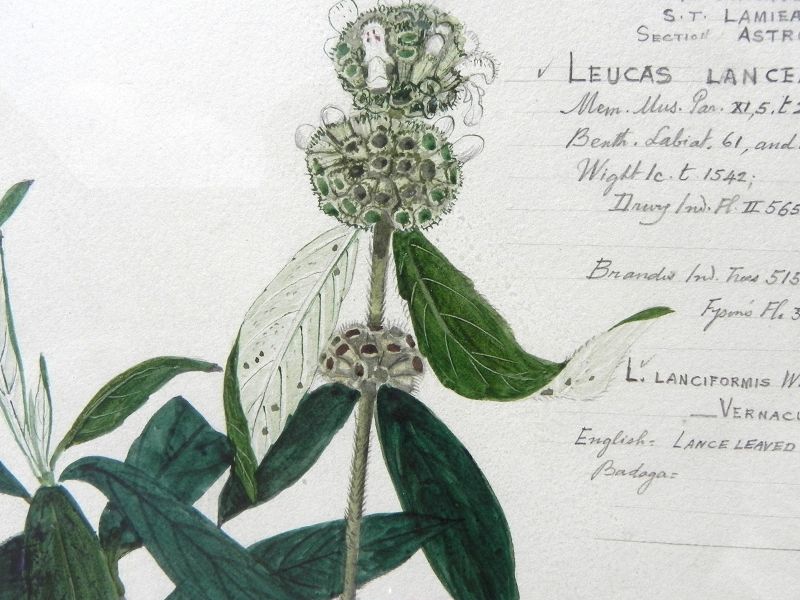 S.T. LAMIEA
SECTION ASTRO
✓ LEUCAS LANCE
Mem. Mus. Par. XI, 5, t 2
Benth. Labiat. 61, and
Wight Ic. t. 1542;
Drury Ind. Fl. II 565
Brandis Ind. Trees 515
Fyson's Fl. 3
L. LANCIFORMIS W
—VERNACU
English = LANCE LEAVED
Badaga =